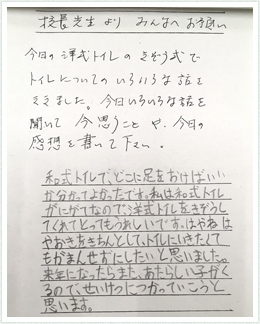 校長先生より みんなへお願い
今日の洋式トイレのきぞう式で
トイレについてのいろいろな話を
ききました。今日いろいろな話を
聞いて 今思うことや、今日の
感想を書いて下さい。
和式トイレで、どこに足をおけばいい
か分かってよかったです。私は和式トイレ
がにがてなので、洋式トイレをきぞうし
てくれてとってもうれしいです。はやねは
やおきをきちんとして、トイレにいきたくて
もがまんせずにしたいと思いました。
来年になったらまた、あたらしい子がく
るので、せいけつにつかっていこうと
思います。